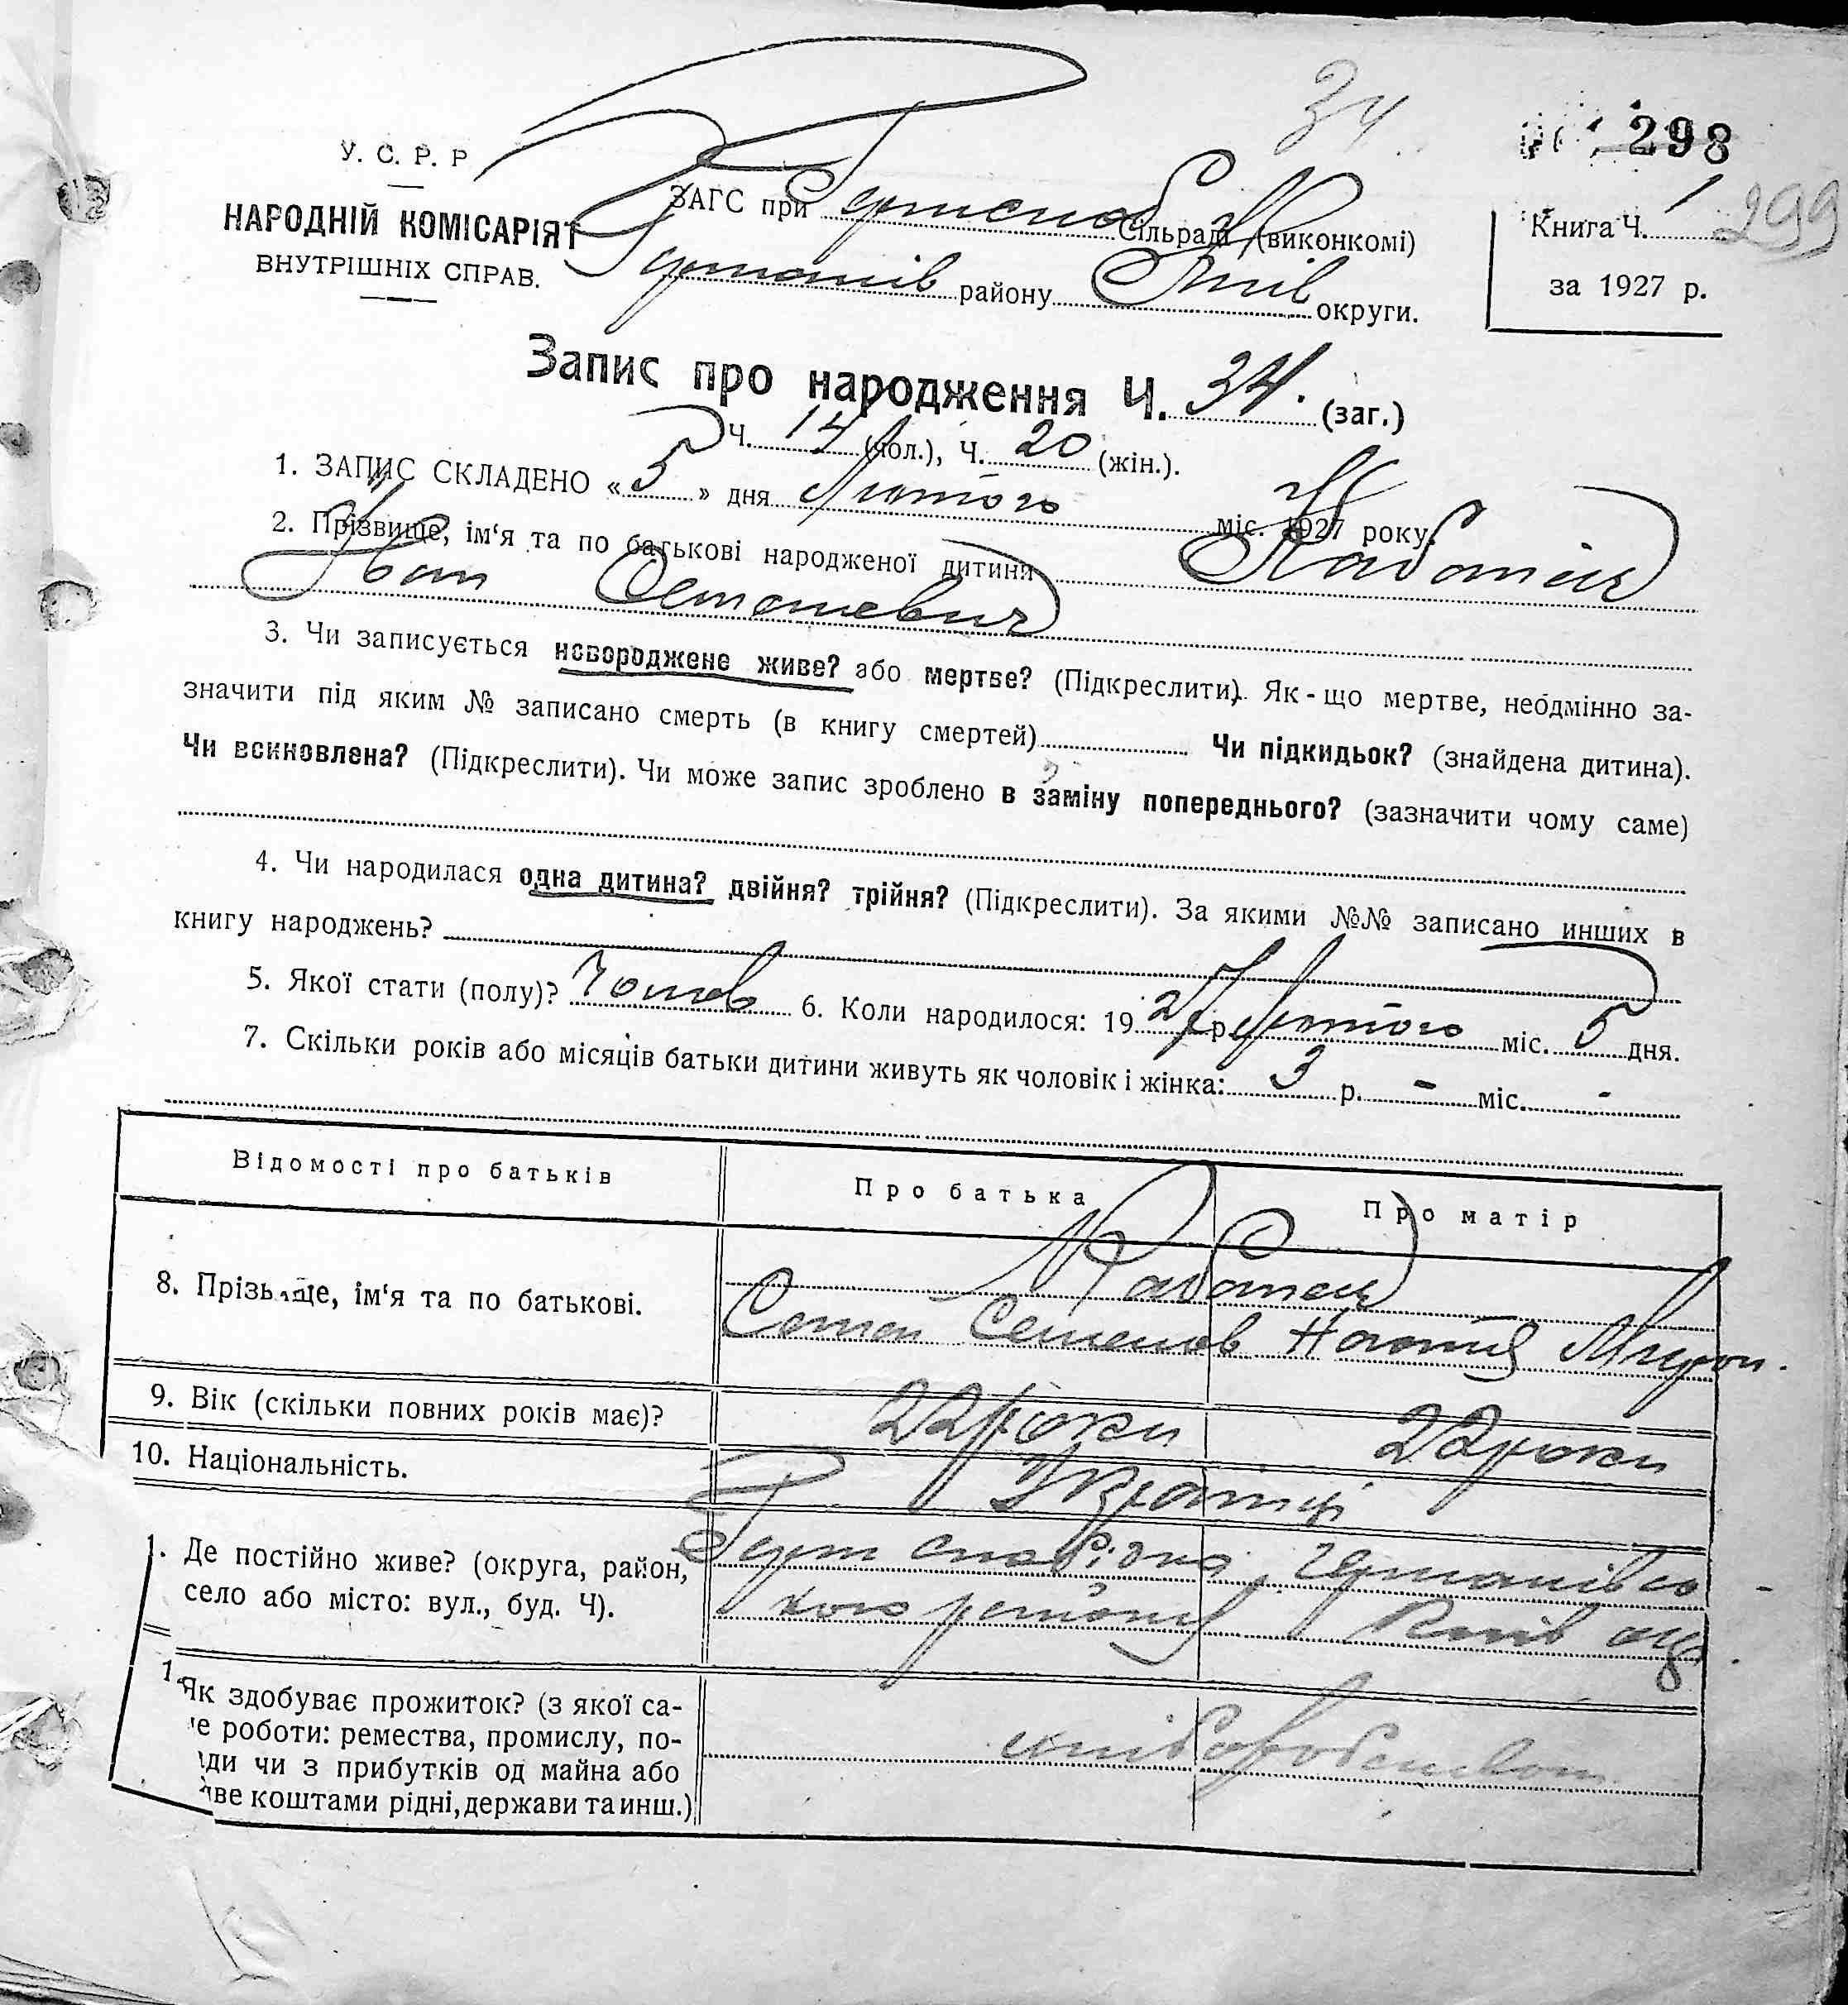 34
298
299
У. С. Р. Р
НАРОДНІЙ КОМІСАРІЯТ
ВНУТРІШНІХ СПРАВ.
ЗАГС при Сільраді (виконкомі)
району Київ округи.
Книга Ч. 1
за 1927 р.
Запис про народження Ч. 34. (заг.)
Ч. 14 (чол.), Ч. 20 (жін.).
1. ЗАПИС СКЛАДЕНО «5» дня Лютого міс. 1927 року.
2. Прізвище, ім'я та по батькові народженої дитини Кабанець
Іван
3. Чи записується новороджене живе? або мертве? (Підкреслити). Як-що мертве, необмінно за-
значити під яким № записано смерть (в книгу смертей) Чи підкидьок? (знайдена дитина).
Чи всиновлена? (Підкреслити). Чи може запис зроблено в заміну попереднього? (зазначити чому саме)
4. Чи народилася одна дитина? двійня? трійня? (Підкреслити). За якими №№ записано инших в
книгу народжень?
5. Якої стати (полу)? Чолов 6. Коли народилося: 1927 р. Лютого міс. 5 дня.
7. Скільки років або місяців батьки дитини живуть як чоловік і жінка: 3 р. - міс. -
Відомості про батьків Про батька Про матір
8. Прізвище, ім'я та по батькові.
Кабанець
Семенов Мирон.
9. Вік (скільки повних років має)? 22 роки 22 роки
10. Національність. Українці
1. Де постійно живе? (округа, район,
село або місто: вул., буд. Ч).
Германівсь-
кого району Київ окр
1 Як здобуває прожиток? (з якої са-
е роботи: ремества, промислу, по-
ди чи з прибутків од майна або
ве коштами рідні, держави та инш.)
хліборобством